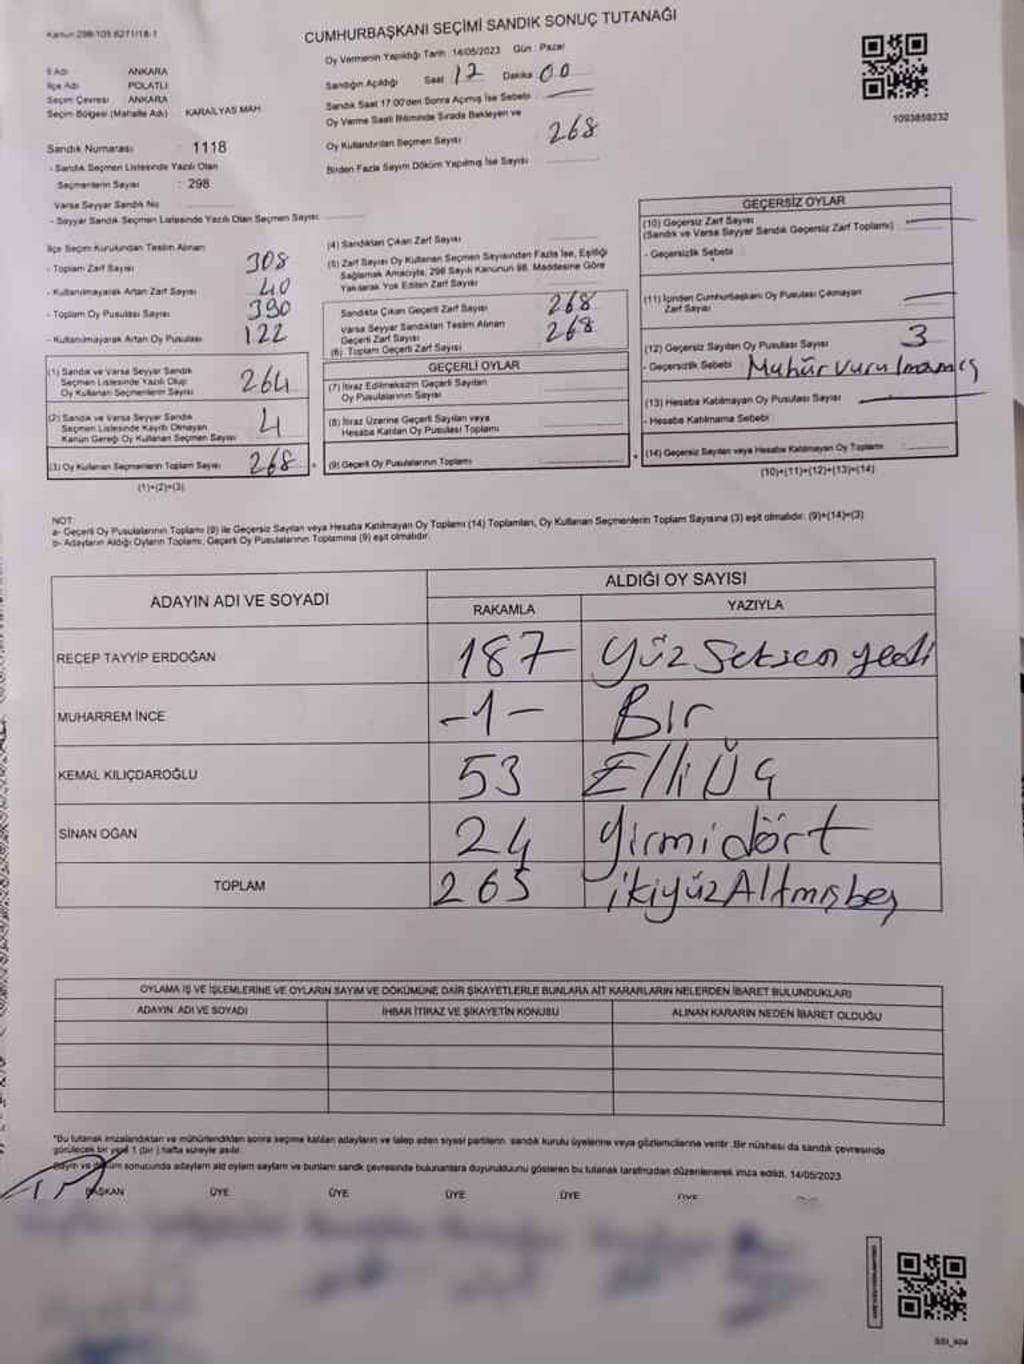 Kanun 298/109 6271/18-1
CUMHURBAŞKANI SEÇİMİ SANDIK SONUÇ TUTANAĞI
Oy Vermenin Yapıldığı Tarih : 14/05/2023 Gün : Pazar
Sandığın Açıldığı Saat 12 Dakika 00
Sandık Saat 17.00'den Sonra Açmış İse Sebebi
Oy Verme Saati Bitiminde Sırada Bekleyen ve
Oy Kullandırılan Seçmen Sayısı 268
Birden Fazla Sayım Döküm Yapılmış İse Sayısı
1093859232
İl Adı ANKARA
İlçe Adı POLATLI
Seçim Çevresi ANKARA
Seçim Bölgesi (Mahalle Adı) KARAİLYAS MAH
Sandık Numarası : 1118
- Sandık Seçmen Listesinde Yazılı Olan
Seçmenlerin Sayısı : 298
Varsa Seyyar Sandık No
- Seyyar Sandık Seçmen Listesinde Yazılı Olan Seçmen Sayısı:
İlçe Seçim Kurulundan Teslim Alınan
- Toplam Zarf Sayısı 308
- Kullanılmayarak Artan Zarf Sayısı 40
- Toplam Oy Pusulası Sayısı 390
- Kullanılmayarak Artan Oy Pusulası 122
(1) Sandık ve Varsa Seyyar Sandık
Seçmen Listesinde Yazılı Olup
Oy Kullanan Seçmenlerin Sayısı 264
(2) Sandık ve Varsa Seyyar Sandık
Seçmen Listesinde Kayıtlı Olmayan
Kanun Gereği Oy Kullanan Seçmen Sayısı 4
(3) Oy Kullanan Seçmenlerin Toplam Sayısı 268
(1)+(2)=(3)
(4) Sandıktan Çıkan Zarf Sayısı
(5) Zarf Sayısı Oy Kullanan Seçmen Sayısından Fazla İse, Eşitliği
Sağlamak Amacıyla, 298 Sayılı Kanunun 98. Maddesine Göre
Yakılarak Yok Edilen Zarf Sayısı
Sandıkta Çıkan Geçerli Zarf Sayısı 268
Varsa Seyyar Sandıktan Teslim Alınan
Geçerli Zarf Sayısı 268
(6) Toplam Geçerli Zarf Sayısı
GEÇERLİ OYLAR
(7) İtiraz Edilmeksizin Geçerli Sayılan
Oy Pusulasının Sayısı
(8) İtiraz Üzerine Geçerli Sayılan veya
Hesaba Katılan Oy Pusulası Toplamı
(9) Geçerli Oy Pusulalarının Toplamı
GEÇERSİZ OYLAR
(10) Geçersiz Zarf Sayısı
(Sandık ve Varsa Seyyar Sandık Geçersiz Zarf Toplamı)
- Geçersizlik Sebebi :
(11) İçinden Cumhurbaşkanı Oy Pusulası Çıkmayan
Zarf Sayısı
(12) Geçersiz Sayılan Oy Pusulası Sayısı 3
- Geçersizlik Sebebi Mühür Vurulmamış
(13) Hesaba Katılmayan Oy Pusulası Sayısı
- Hesaba Katılmama Sebebi
(14) Geçersiz Sayılan veya Hesaba Katılmayan Oy Toplamı
(10)+(11)+(12)+(13)=(14)
NOT:
a- Geçerli Oy Pusulalarının Toplamı (9) ile Geçersiz Sayılan veya Hesaba Katılmayan Oy Toplamı (14) Toplamları, Oy Kullanan Seçmenlerin Toplam Sayısına (3) eşit olmalıdır. (9)+(14)=(3)
b- Adayların Aldığı Oyların Toplamı, Geçerli Oy Pusulalarının Toplamına (9) eşit olmalıdır.
ADAYIN ADI VE SOYADI
ALDIĞI OY SAYISI
RAKAMLA YAZIYLA
RECEP TAYYİP ERDOĞAN 187 Yüz Seksen yedi
MUHARREM İNCE -1- Bır
KEMAL KILIÇDAROĞLU 53 Elli Üç
SİNAN OĞAN 24 Yirmi dört
TOPLAM 265 ikiyüz Altmışbeş
OYLAMA İŞ VE İŞLEMLERİNE VE OYLARIN SAYIM VE DÖKÜMÜNE DAİR ŞİKAYETLERLE BUNLARA AİT KARARLARIN NELERDEN İBARET BULUNDUKLARI
ADAYIN ADI VE SOYADI İHBAR İTİRAZ VE ŞİKAYETİN KONUSU ALINAN KARARIN NEDEN İBARET OLDUĞU
*Bu tutanak imzalandıktan ve mühürlendikten sonra seçime katılan adayların ve talep eden siyasi partilerin sandık kurulu üyelerine veya gözlemcilerine verilir. Bir nüshası da sandık çevresinde
görülecek bir yere 1 (bir) hafta süreyle asılır.
Sayım ve döküm sonucunda adayların aldığı oyların sayıları ve bunların sandık çevresinde bulunanlara duyurulduğunu gösteren bu tutanak tarafımızdan düzenlenerek imza edildi. 14/05/2023
BAŞKAN ÜYE ÜYE ÜYE ÜYE ÜYE